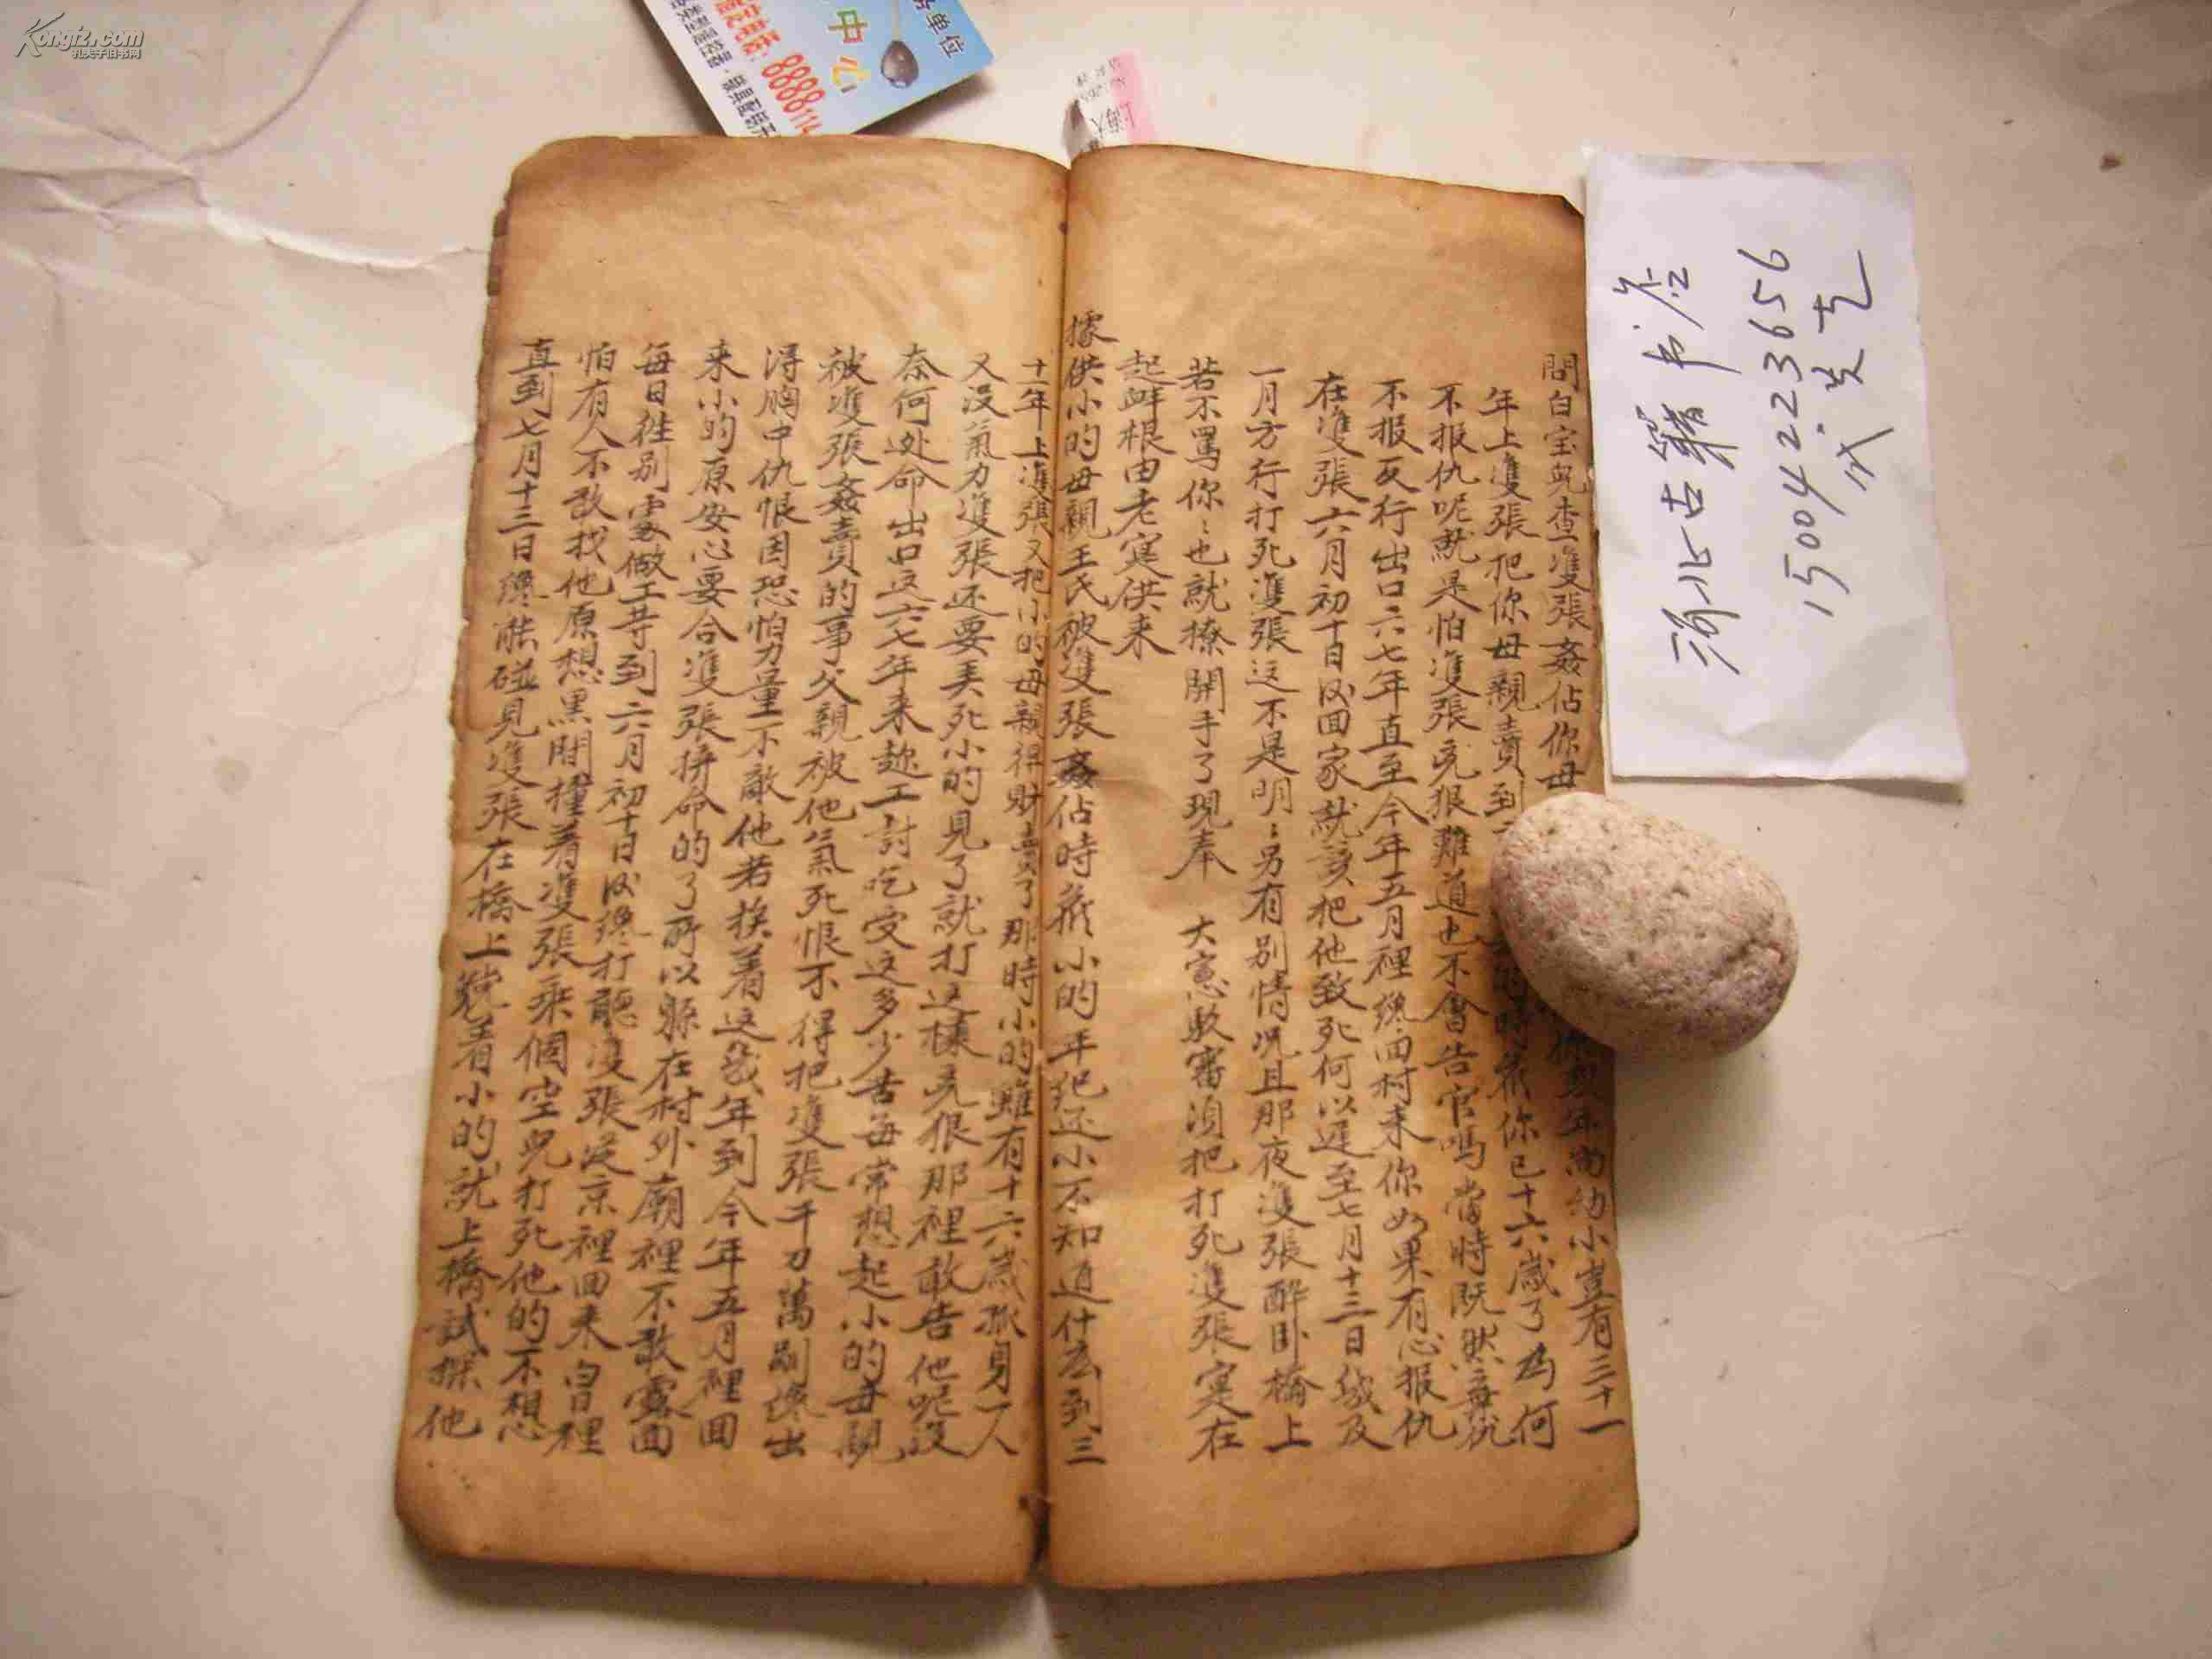 問白宝兒查雙張姦佔你母
你契年尚幼小豈有三十一
年上雙張把你母親賣到
時候你已十六歲了為何
不报仇呢就是怕雙張兇狠難道也不會告官嗎當時既然
不报反行出口六七年直至今年五月裡纔回村来你如果有心报仇
在雙張六月初十日回家就該把他致死何以遲至七月十三日
一月方行打死雙張这不是明〻另有别情况且那夜雙張醉卧橋上
若不罵你〻也就撩開手了現奉 大憲駁審須把打死雙張寔在
起衅根由老寔供来
據供小的母親王氏被雙張姦佔時候小的年紀还小不知道什庅到三
十一年上雙張又把小的母親得財賣了那時小的雖有十六歲孤身一人
又没氣力雙張还要美死小的見了就打这樣兇狠那裡敢告他呢没
奈何逃命出口这六七年来趂工討吃受这多少苦每常想起小的母親
被雙張姦賣的事父親被他氣死恨不得把雙張千刀萬剮纔出
得胸中仇恨因恐怕力量不敵他若挨着这幾年到今年五月裡回
来小的原安心要合雙張拚命的了所以躱在村外廟裡不敢露面
每日徃别處做工等到六月初十日纔打聽没張從京裡回来白日裡
怕有人不敢找他原想黑間撞着雙張乘個空兒打死他的不想
直到七月十三日纔碰見雙張在橋上躺着小的就上橋試探他
河北古籍书店
15004223656
中心
单位
8888114
Kongfz.com
孔夫子旧书网